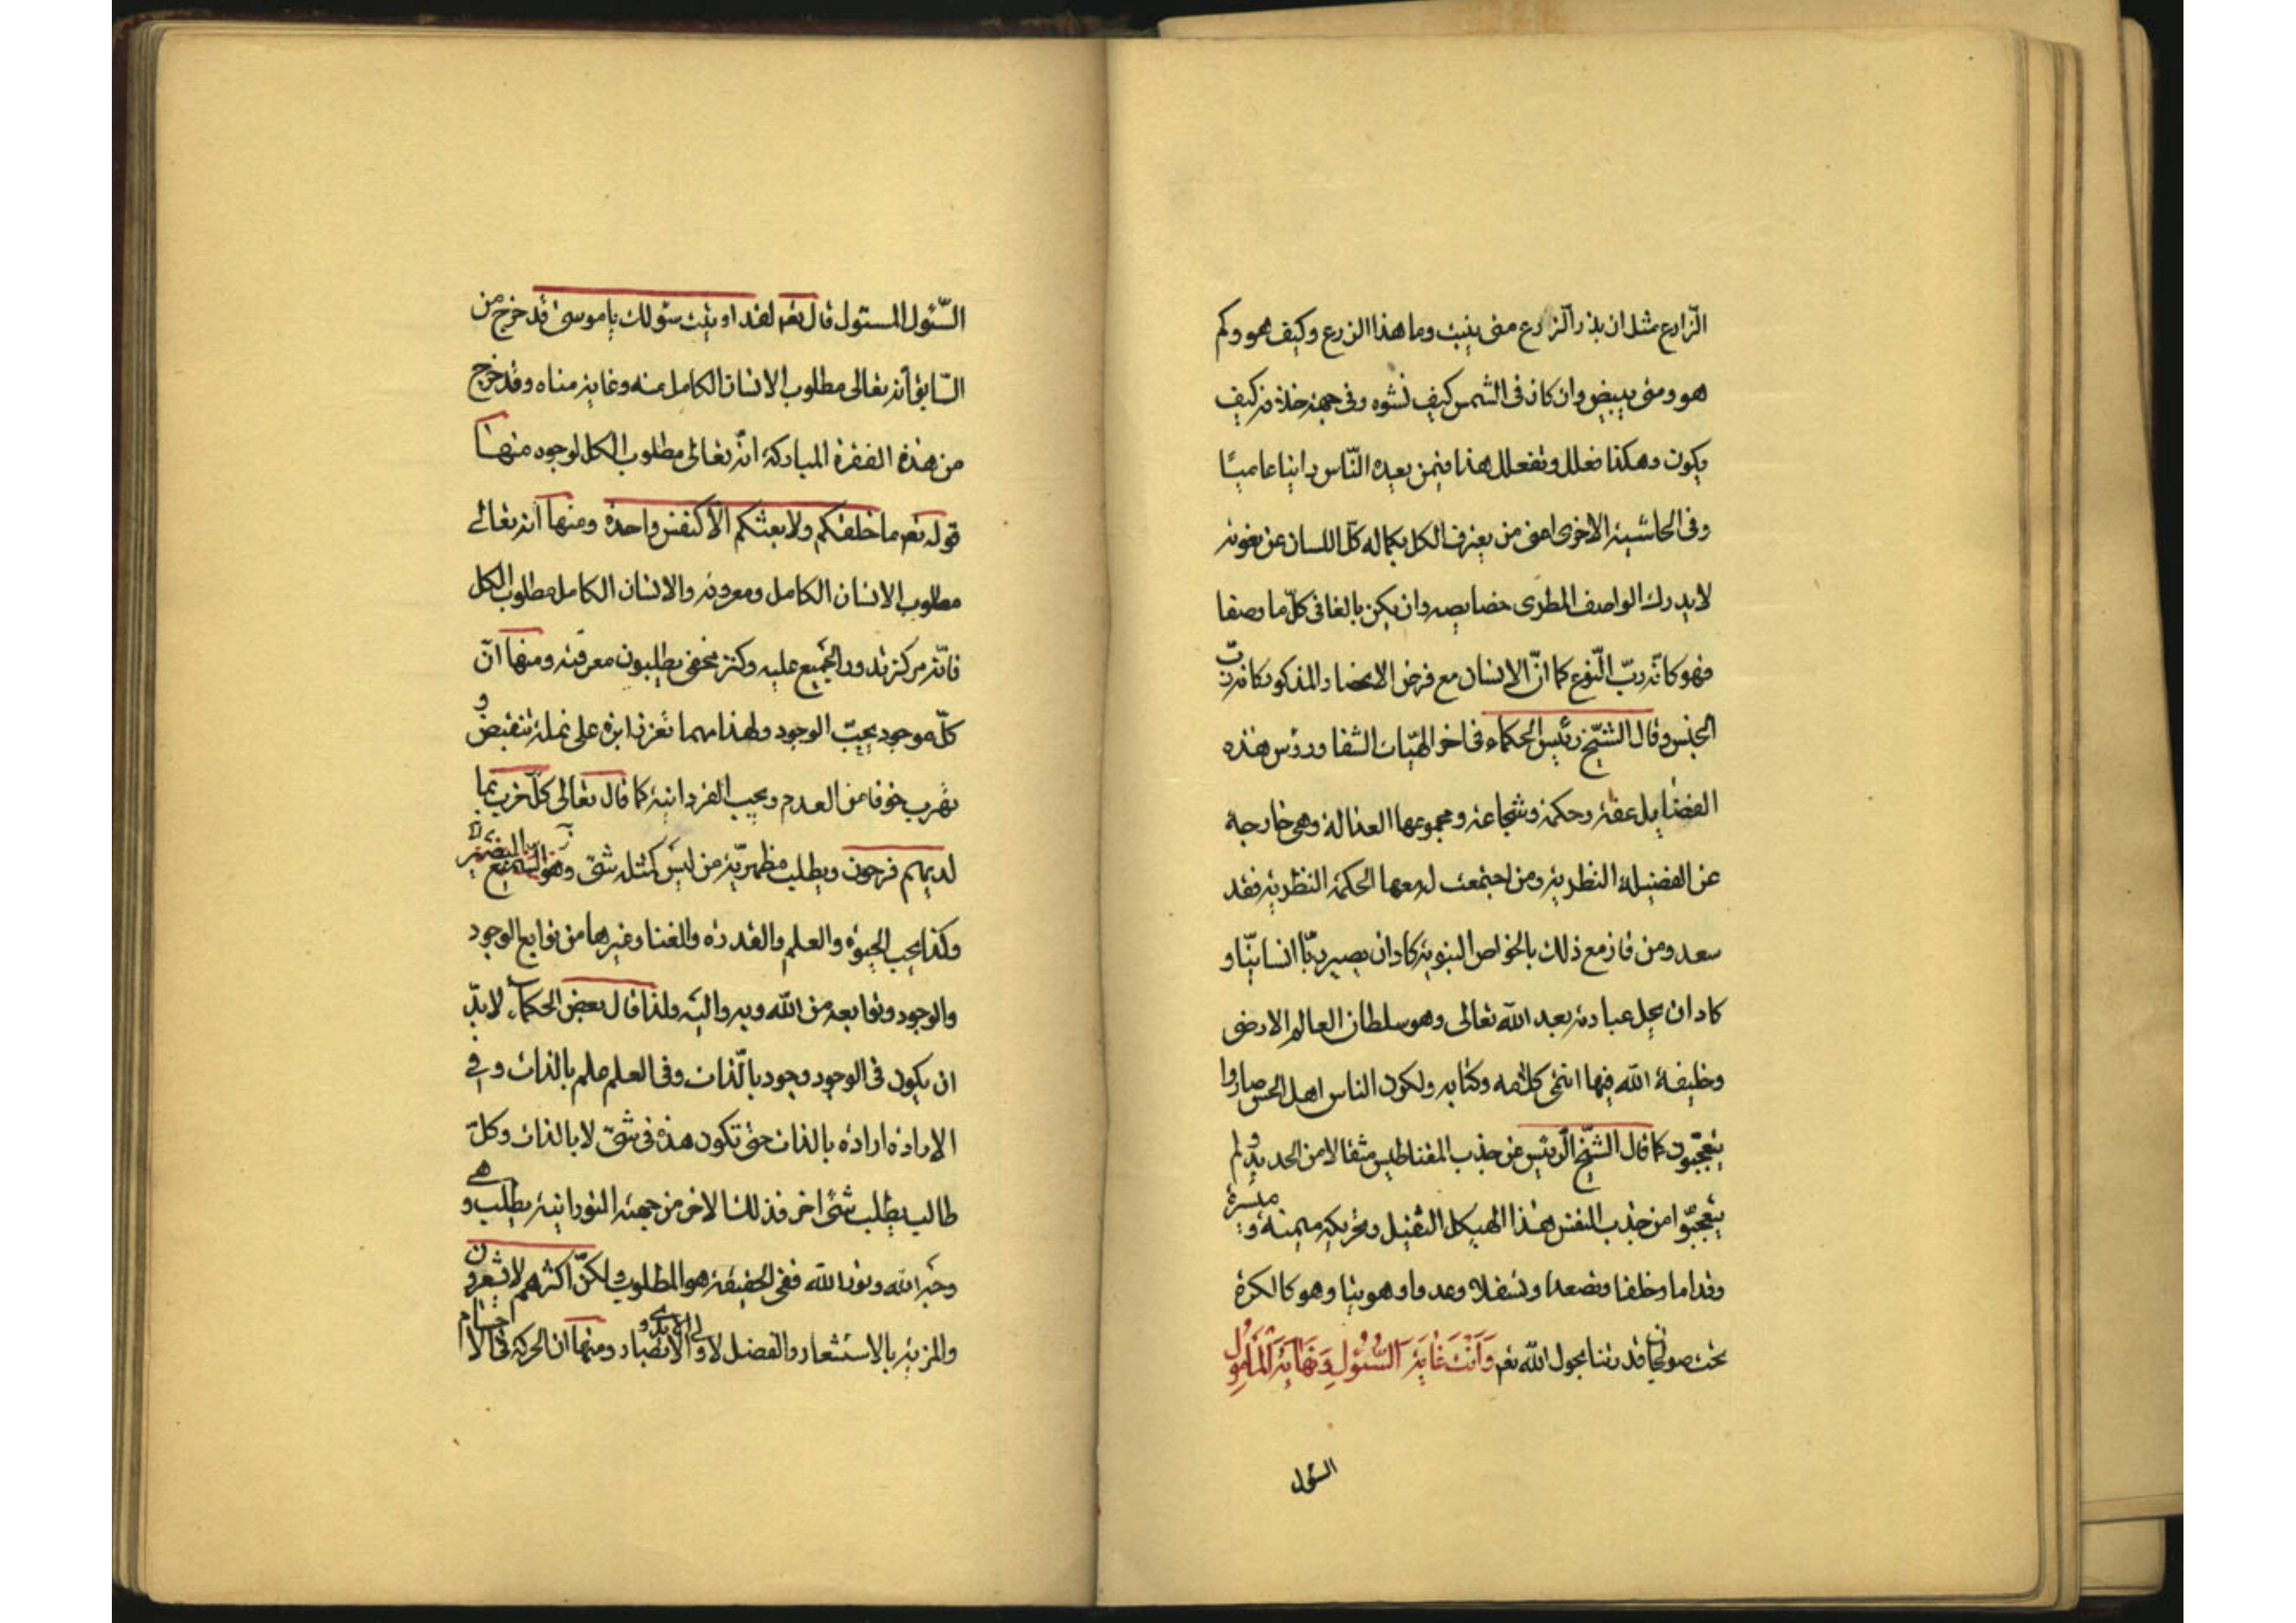 الزّارع مثل ان بذر الزّارع متى ينبت وما هذا الزرع وكيف هو وكم
هو ومتى يبيض وان كان فى الشمس كيف نشوه وفى جهة خلافه كيف
يكون وهكذا فعلل وتفعلل هذا فيمن يعده النّاس دانيا عاميّا
وفى الحاشية الاخرى اعنى من يعترف الكل بكماله كلّ اللسان عن نعوته
لا يدرك الواصف المطرى خصايصه وان يكن بالغا فى كلّ ما وصفا
فهو كانّه ربّ النّوع كما انّ الانسان مع فرض الانحصار المذكور كانه ربّ
الجنس وقال الشيخ رئيس الحكماء فى اخر الهيّات الشفا ورؤس هذه
الفضايل عفة وحكمة وشجاعة ومجموعها العدالة وهى خارجة
عن الفضيلة النظرية ومن اجتمعت له معها الحكمة النظرية فقد
سعد ومن فاز مع ذلك بالخواص النبوية كاد ان يصير ربّا انسانيّا و
كاد ان يحل عبادته بعد الله تعالى وهو سلطان العالم الارضى
وخليفة الله فيها انتهى كلامه وكتابه ولكون الناس اهل الحس صاروا
يتعجّبون كما قال الشيّخ الرّئيس عن جذب المقناطيس مثقالا من الحديد ولم
يتعجّبوا من جذب النفس هذا الهيكل الثقيل وتحريكه ميمنة وميسرة
وقداما وخلفا وتصعدا وتسفلا وعدوا وهوينا وهو كالكرة
تحت صولجان قدرتنا بحول الله تعم وَاَنْتَ غَايَةَ السُّؤُولِ وَنَهايَةَ الْمَأمُولِ
السّئول
السّئول المسئول قال تعم لقد اوتيت سؤلك ياموسى قد خرج من
السّابق أنه تعالى مطلوب الانسان الكامل منه وغاية مناه وقد خرج
من هذه الفقرة المباركة انّه تعالى مطلوب الكل لوجوه منها
قوله تعم ما خلقكم ولا بعثكم الّا كنفس واحدة ومنها انه تعالى
مطلوب الانسان الكامل ومعروفه والانسان الكامل مطلوب الكل
فانّه مركز تدور الجميع عليه وكنز مخفى يطلبون معرفته ومنها انّ
كلّ موجود يحبّ الوجود ولهذا مهما تغرز ابرة على نملة تنقبض و
تهرب خوفا من العدم ويحب الفردانية كما قال تعالى كلّ حزب بما
لديهم فرحون ويطلب مظهريّة من ليس كمثله شئ وهو السّميع البصير
وكذا يحب الحيوة والعلم والقدرة والغنا وغيرها من توابع الوجود
والوجود وتوابعه من الله وبه واليه ولذا قال بعض الحكماء لا بدّ
ان يكون فى الوجود وجود بالّذات وفى العلم علم بالذات وفى
الارادة ارادة بالذات حتى تكون هذه فى شئ لا بالذات وكلّ
طالب يطلب شيئا اخر فذلك الاخر من جهته النورانية يطلب وهى
وجه الله ونور الله ففى الحقيقة هو المطلوب ولكنّ اكثرهم لا يشعرون
والمزية بالاستشعار والفضل لاولى الايدى والابصار ومنها ان الحركة فى الاجسام